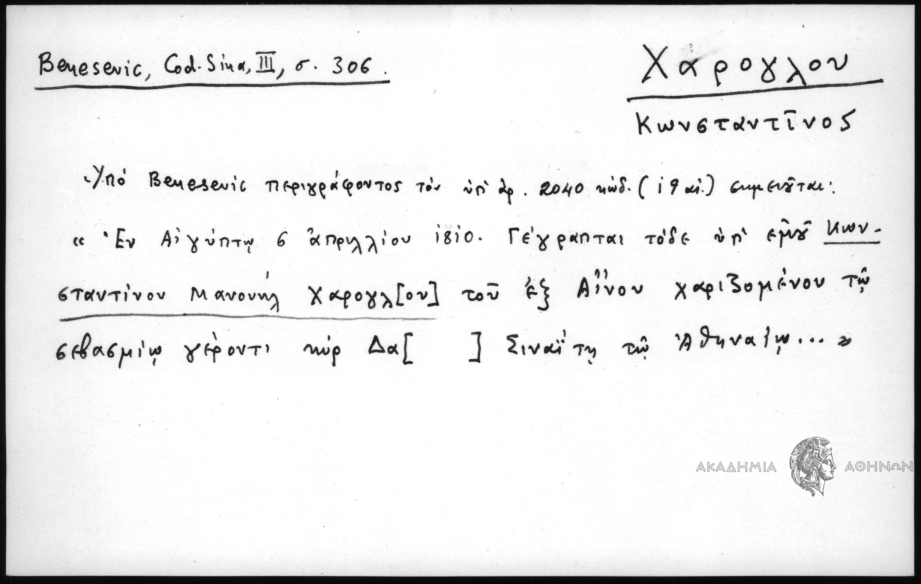 Benesevic, Cod. Sina, III, σ. 306.
Χάρογλου
Κωνσταντῖνος
Ὑπό Benesevic περιγράφοντος τόν ὑπ' ἀρ. 2040 κώδ. (19 αἰ.) σημειοῦται:
« Ἐν Αἰγύπτῳ 6 ἀπριλλίου 1810. Γέγραπται τόδε ὑπ' ἐμοῦ Κων-
σταντίνου Μανουήλ Χαρογλ[ου] τοῦ ἐξ Αἴνου χαριζομένου τῷ
σεβασμίῳ γέροντι κύρ Δα[ ] Σιναΐτῃ τῷ Ἀθηναίῳ... »
ΑΚΑΔΗΜΙΑ ΑΘΗΝΩΝ